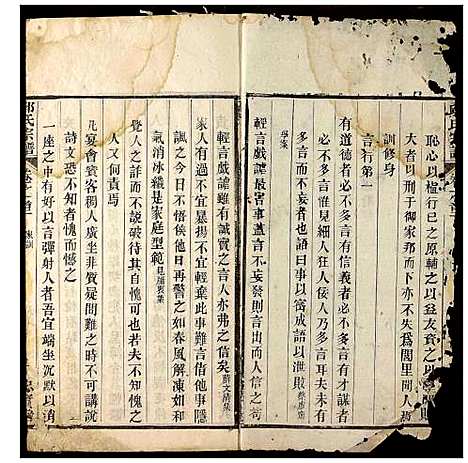 恥心以檢行已之原輔之以益友資之以
大者以刑于御家邦而不失爲閭里閒人
訓修身
言行第一
有道德者必不多言有信義者必不多言有才謀者
必不多言惟見細人狂人佞人乃多言耳夫未有
多言而不妄者也語曰事以宻成語以泄敗
學案
輕言戲謔最害事蓋言不妄發則言出人信之苟
輕言戲謔雖有誠實之言人亦弗之信矣 薛文清集
家人有過不宜暴揚不宜輕棄此事難言借他事隱
諷之今日不悟俟他日再警之如春風解凍如和
氣消冰纔是家庭型範
覺人之詐而不說破待其自愧可也若夫不知愧之
人又何責焉
凡宴會賓客稠人廣坐非質疑問難之時不可講說
詩文恐不知者愧而憾之
一座之中有好以言彈射人者吾宜端坐沉默以消
氏宗譜
卷之首